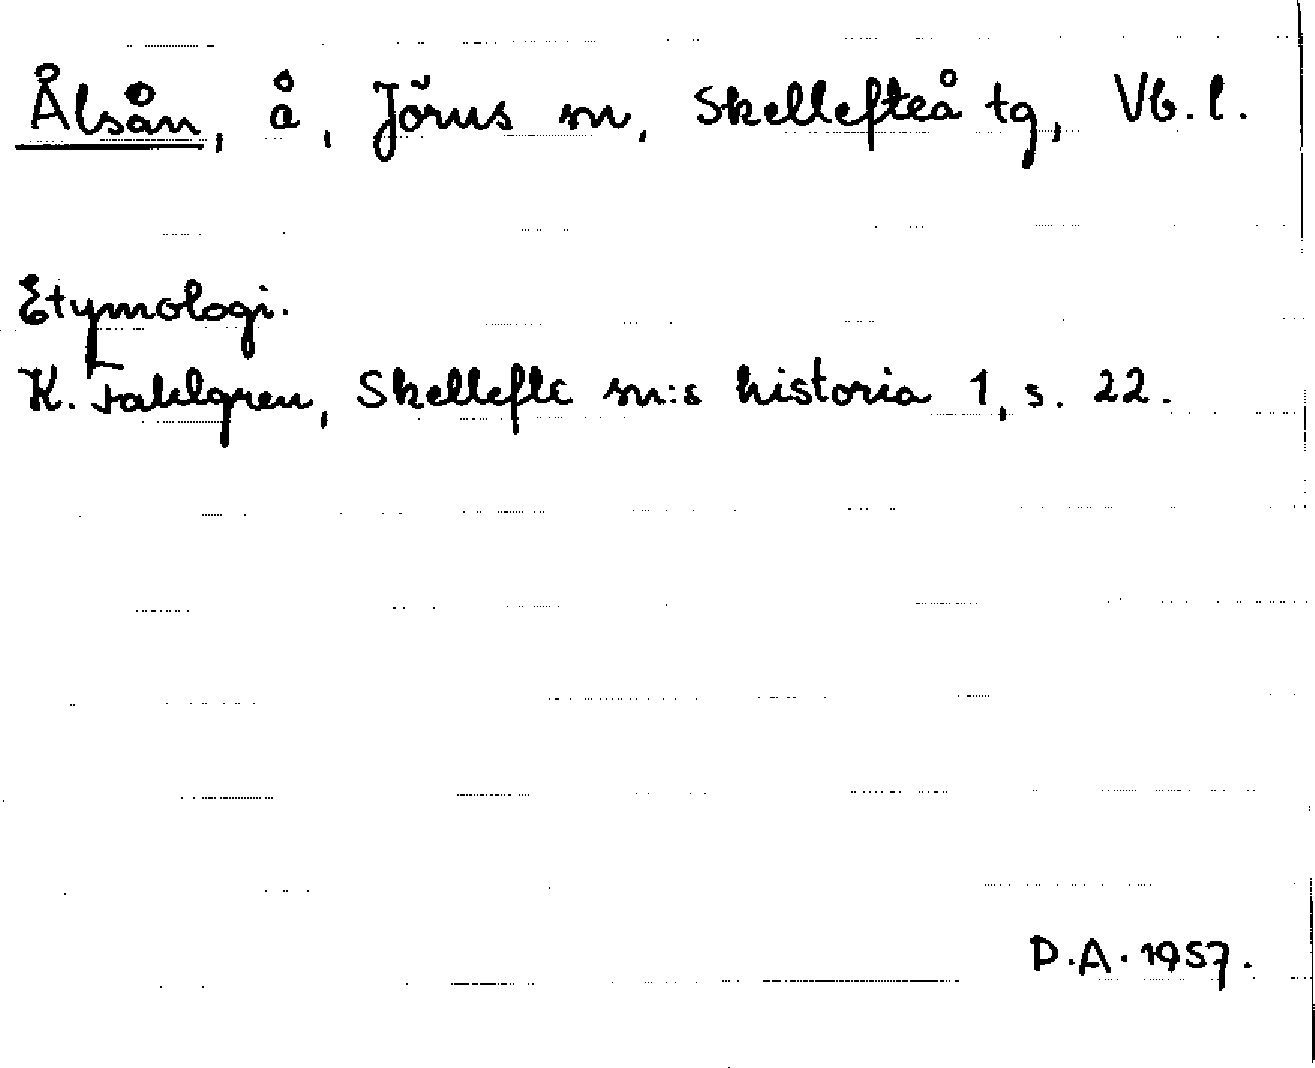 Ålsån, å, Jörns sn, Skellefteå tg, Vb. l.
Etymologi.
K. Fahlgren, Skellefte sn:s historia 1, s. 22.
D.A. 1957.